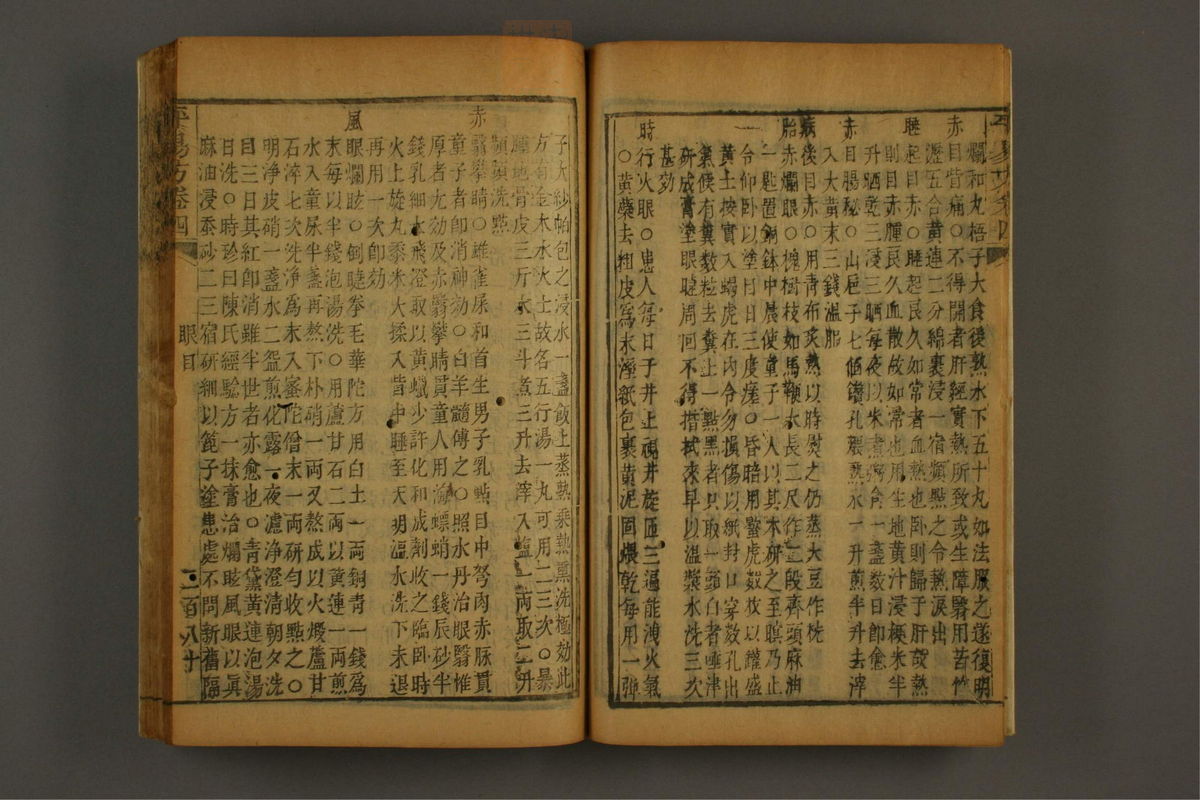 爛和丸梧子大食後熟水下五十九如法服之遂復明
赤目眥痛○不得開者肝經實熱所致或生障翳用苦竹
瀝五合黃連二分綿裹浸一宿頻點之令熱淚出
睡起目赤○睡起良久如常者血熱也臥則歸于肝故熱
則目赤腫良久血散故如常也用生地黃汁浸粳米半
升晒乾三浸三晒每夜以米煮粥食一盞數日卽愈
赤目腸秘○山梔子七個鑽孔煨熟水一升煎半升去滓
入大黃末三錢溫服
病後目赤○用青布炙熱以時熨之仍蒸大豆作枕
胎赤爛眼○槐樹枝如馬鞭木長二尺作二段齊頭麻油
一匙置銅鉢中晨使童子一人以其木研之至暝乃止
令仰臥以塗目日三度瘥○昏暗用蠶虎數枚以罐盛
黃土按實入蝎虎在內令勿損傷以紙封口穿數孔出
氣候有糞數粒去糞上一點黑者只取一頭白者唾津
研成膏塗眼睫周回不得揩拭來早以溫漿水洗三次
甚効
時行火眼○患人每日于井上視井旋匝三遍能洩火氣
○黃蘗去粗皮爲末溼紙包裹黃泥固煨乾每用一彈
子大紗帕包之浸水一盞飯上蒸熟乘熱熏洗極効此
方有金木水火土故名五行湯一丸可用二三次○暴
腫地骨皮三斤水三斗煮三升去滓入鹽一兩取二升
頻頻洗點
赤翳攀睛○雄雀屎和首生男子乳點目中努肉赤脉貫
童子者卽消神効○白羊髓傅之○照水丹治眼翳惟
厚者尤効及赤翳攀睛貫童人用海螵蛸一錢辰砂半
錢乳細水飛澄取以黃蠟少許化和成劑收之臨臥時
火上旋丸黍米大揉入眥中睡至天明溫水洗下未退
再用一次卽効
風眼爛眩○倒睫拳毛華陀方用白土一兩銅青一錢爲
末每以半錢泡湯洗○用蘆甘石二兩以黃連一兩煎
水入童尿半盞再熬下朴硝一兩又熬成以火煅蘆甘
石淬七次洗淨爲末入蜜陀僧末一兩研勻收點之○
明淨皮硝一盞水二盌煎化露一夜濾淨澄清朝夕洗
目三日其紅卽消雖半世者亦愈也○青黛黃連泡湯
日洗○時珍曰陳氏經驗方一抹膏治爛眩風眼以眞
麻油浸蠶砂二三宿研細以篦子塗患處不問新舊隔
平易方卷四
眼目
二百八十